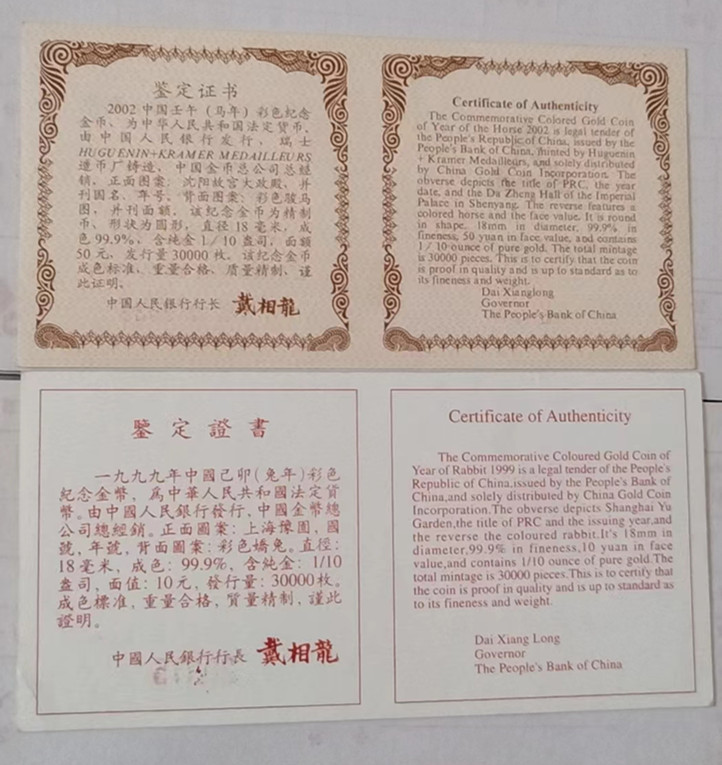 鉴定证书
2002中国壬午（马年）彩色纪念
金币、为中华人民共和国法定货币，
由中国人民银行发行、瑞士
HUGUENIN+KRAMER MEDAILLEURS
造币厂铸造、中国金币总公司总经
销，正面图案：沈阳故宫大政殿，并
刊国名、年号，背面图案：彩色骏马
图，并刊面额，该纪念金币为精制
币、形状为圆形，直径18毫米，成
色99.9%、含纯金1/10盎司，面额
50元，发行量30000枚。该纪念金币
成色标准、重量合格、质量精制，谨
此证明。
中国人民银行行长 戴相龍
Certificate of Authenticity
The Commemorative Colored Gold Coin
of Year of the Horse 2002 is legal tender of
the People's Republic of China, issued by the
People's Bank of China, minted by Huguenin
+ Kramer Medailleurs, and solely distributed
by China Gold Coin Incorporation. The
obverse depicts the title of PRC, the year
date, and the Da Zheng Hall of the Imperial
Palace in Shenyang. The reverse features a
colored horse and the face value. It is round
in shape, 18mm in diameter, 99.9% in
fineness, 50 yuan in face value, and contains
1/10 ounce of pure gold. The total mintage
is 30000 pieces. This is to certify that the coin
is proof in quality and is up to standard as to
its fineness and weight.
Dai Xianglong
Governor
The People's Bank of China
鑒定證書
一九九九年中國己卯(兔年)彩色
紀念金幣，爲中華人民共和國法定貨
幣。由中國人民銀行發行，中國金幣總
公司總經銷。正面圖案：上海豫園，國
號，年號，背面圖案：彩色嬌兔。直徑：
18毫米，成色：99.9%，含純金：1/10
盎司，面值：10元，發行量：30000枚。
成色標准，重量合格，質量精制，謹此
證明。
中國人民銀行行長 戴相龍
Certificate of Authenticity
The Commemorative Coloured Gold Coin of
Year of Rabbit 1999 is a legal tender of the People's
Republic of China,issued by the People's Bank of
China,and solely distributed by China Gold Coin
Incorporation.The obverse depicts Shanghai Yu
Garden,the title of PRC and the issuing year,and
the reverse the coloured rabbit.It's 18mm in
diameter,99.9% in fineness,10 yuan in face
value,and contains 1/10 ounce of pure gold.The
total mintage is 30000 pieces.This is to certify that
the coin is proof in quality and is up to standard as
to its fineness and weight.
Dai Xiang Long
Governor
The People's Bank of China